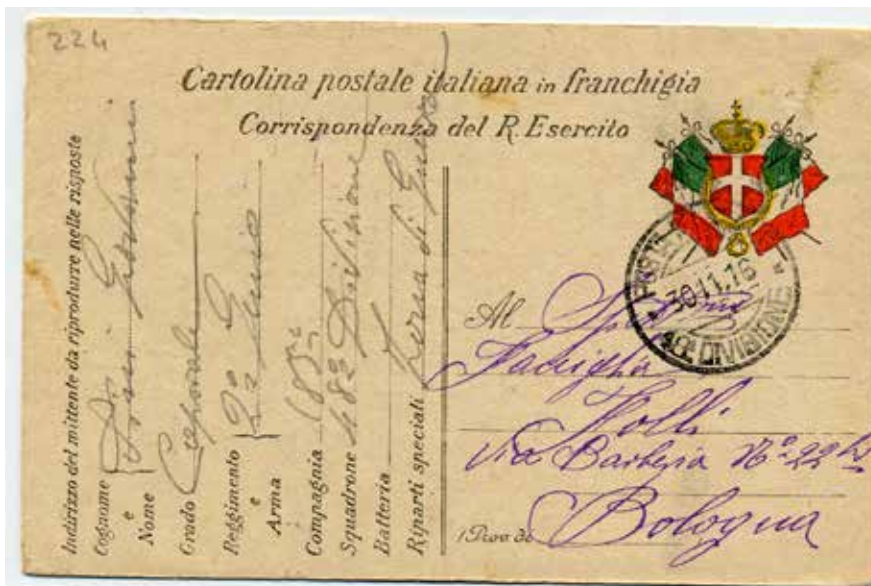 224
Cartolina postale italiana in franchigia
Corrispondenza del R. Esercito
Indirizzo del mittente da riprodurre nelle risposte
Cognome e Nome
Grado Caporale
Reggimento e Arma 2° Genio
Compagnia
Squadrone 48ª Divisione
Batteria
Riparti speciali Zona di Guerra
POSTA
30.11.16
48ª DIVISIONE
Al
Famiglia
Via Barberia N° 22
(Prov. di Bologna